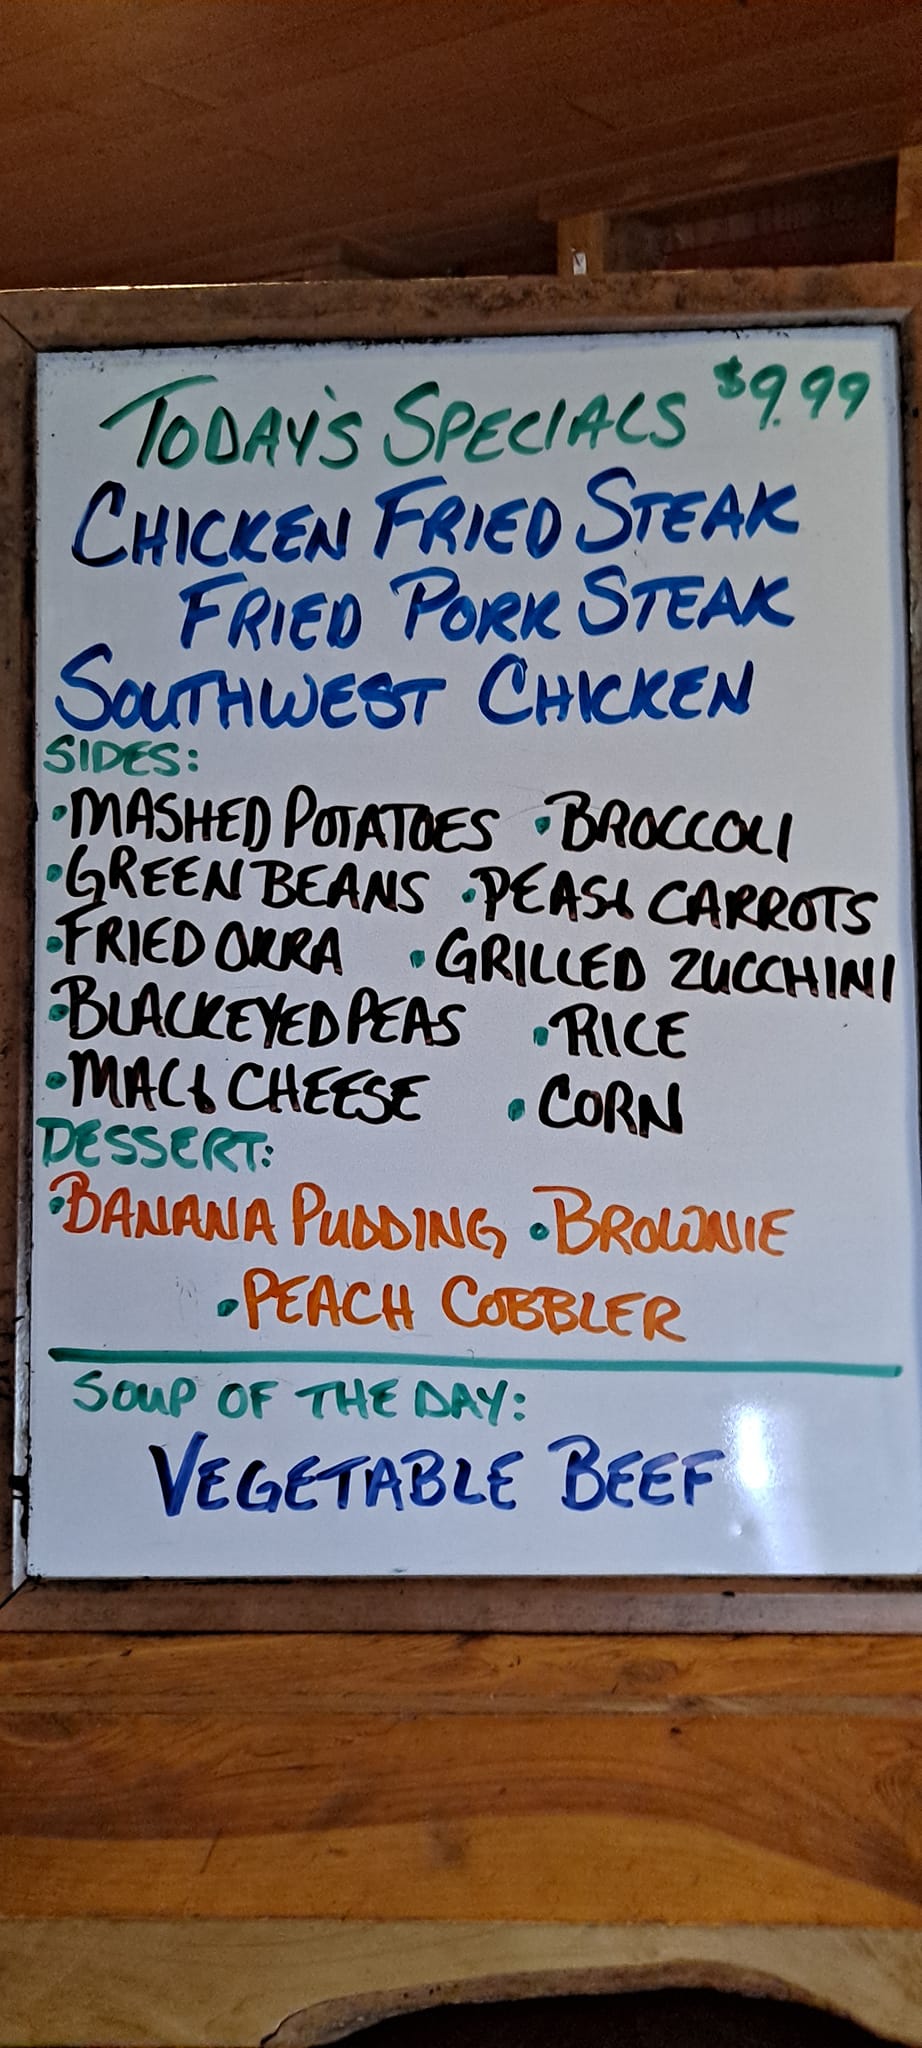 TODAY'S SPECIALS $9.99
CHICKEN FRIED STEAK
FRIED PORK STEAK
SOUTHWEST CHICKEN
SIDES:
•MASHED POTATOES •BROCCOLI
•GREEN BEANS •PEAS & CARROTS
•FRIED OKRA •GRILLED ZUCCHINI
•BLACKEYED PEAS •RICE
•MAC & CHEESE •CORN
DESSERT:
•BANANA PUDDING •BROWNIE
•PEACH COBBLER
SOUP OF THE DAY:
VEGETABLE BEEF